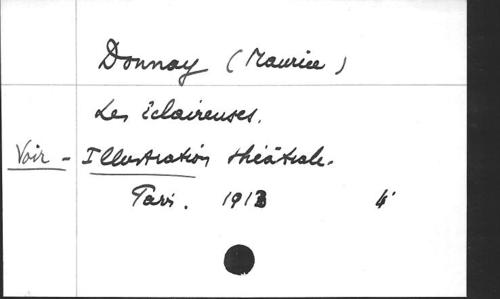 Donnay (Maurice)
Les Éclaireuses.
Voir - Illustration théâtrale.
Paris. 1913 4°